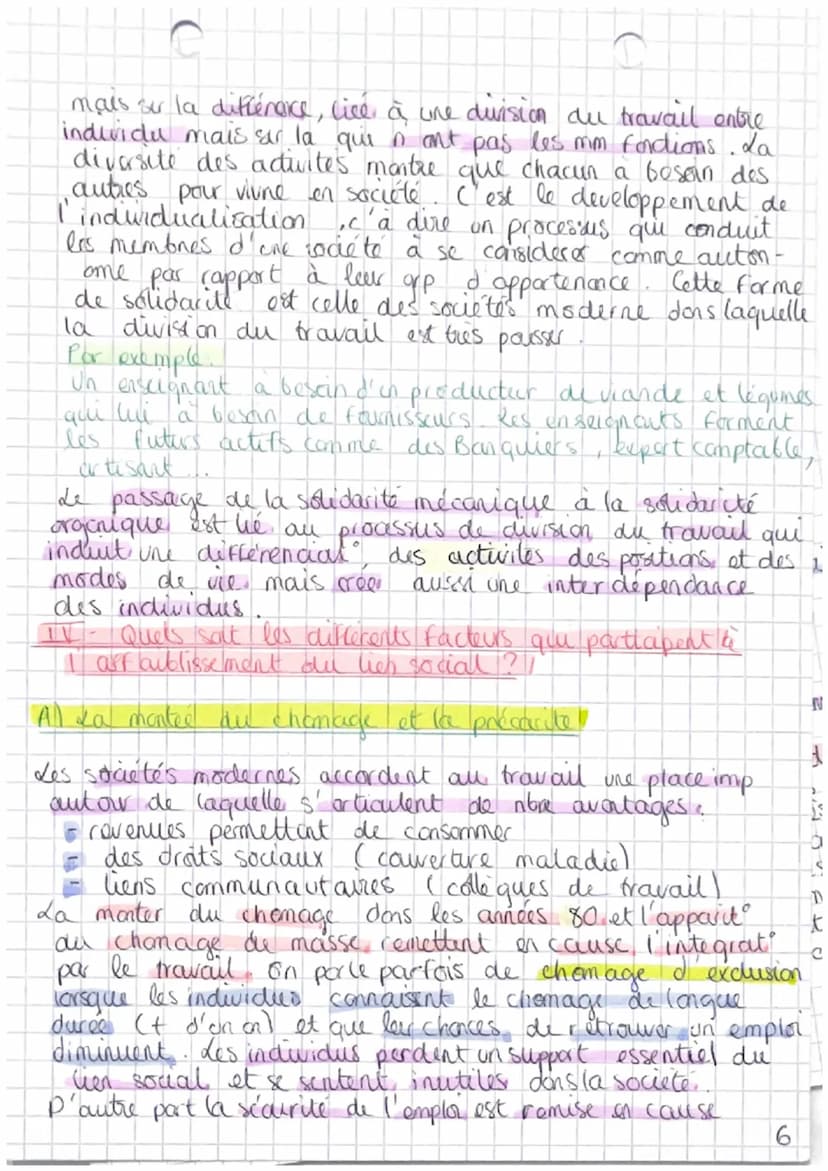 mais sur la différence, liée à une division du travail entre
individu mais sur la qui n'ont pas les mm fonctions. La
diversité des activités montre que chacun a besoin des
autres pour vivre en société. C'est le developpement de
l'individualisation, c'à dire un processus qui conduit
les membres d'une société à se considérer comme auton-
ome par rapport à leur grp d'appartenance. Cette forme
de solidarité est celle des sociétés moderne dans laquelle
la division du travail est très pousser.
Par exemple.
Un enseignant a besoin d'un producteur de viande et légumes
qui lui a besoin de fournisseurs. Les enseignants forment
les futurs actifs comme des Banquiers, expert comptable,
artisant...
Le passage de la solidarité mécanique à la solidarité
organique est lié au processus de division du travail qui
induit une différenciat° des activités des positions et des
modes de vie mais créer aussi une interdépendance
des individus.
IV- Quels sont les différents facteurs qui participent à
l'affaiblissement du lien social ?
A) La monteé du chomage et la précarité
Les sociétés modernes accordent au travail une place imp
autour de laquelle s'articulent de nbre avantages:
- revenues permettant de consommer
- des droits sociaux (couverture maladie)
- liens communautaires (collègues de travail)
La monter du chomage dans les années 80 et l'apparit°
du chomage de masse remettent en cause l'intégrat°
par le travail. On parle parfois de chomage d'exclusion
lorsque les individus connaisent le chomage de longue
durée (+ d'un an) et que leur chances de retrouver un emploi
diminuent. Les individus perdent un support essentiel du
lien social et se sentent inutiles dans la société.
D'autre part la sécurité de l'emploi est remise en cause
6